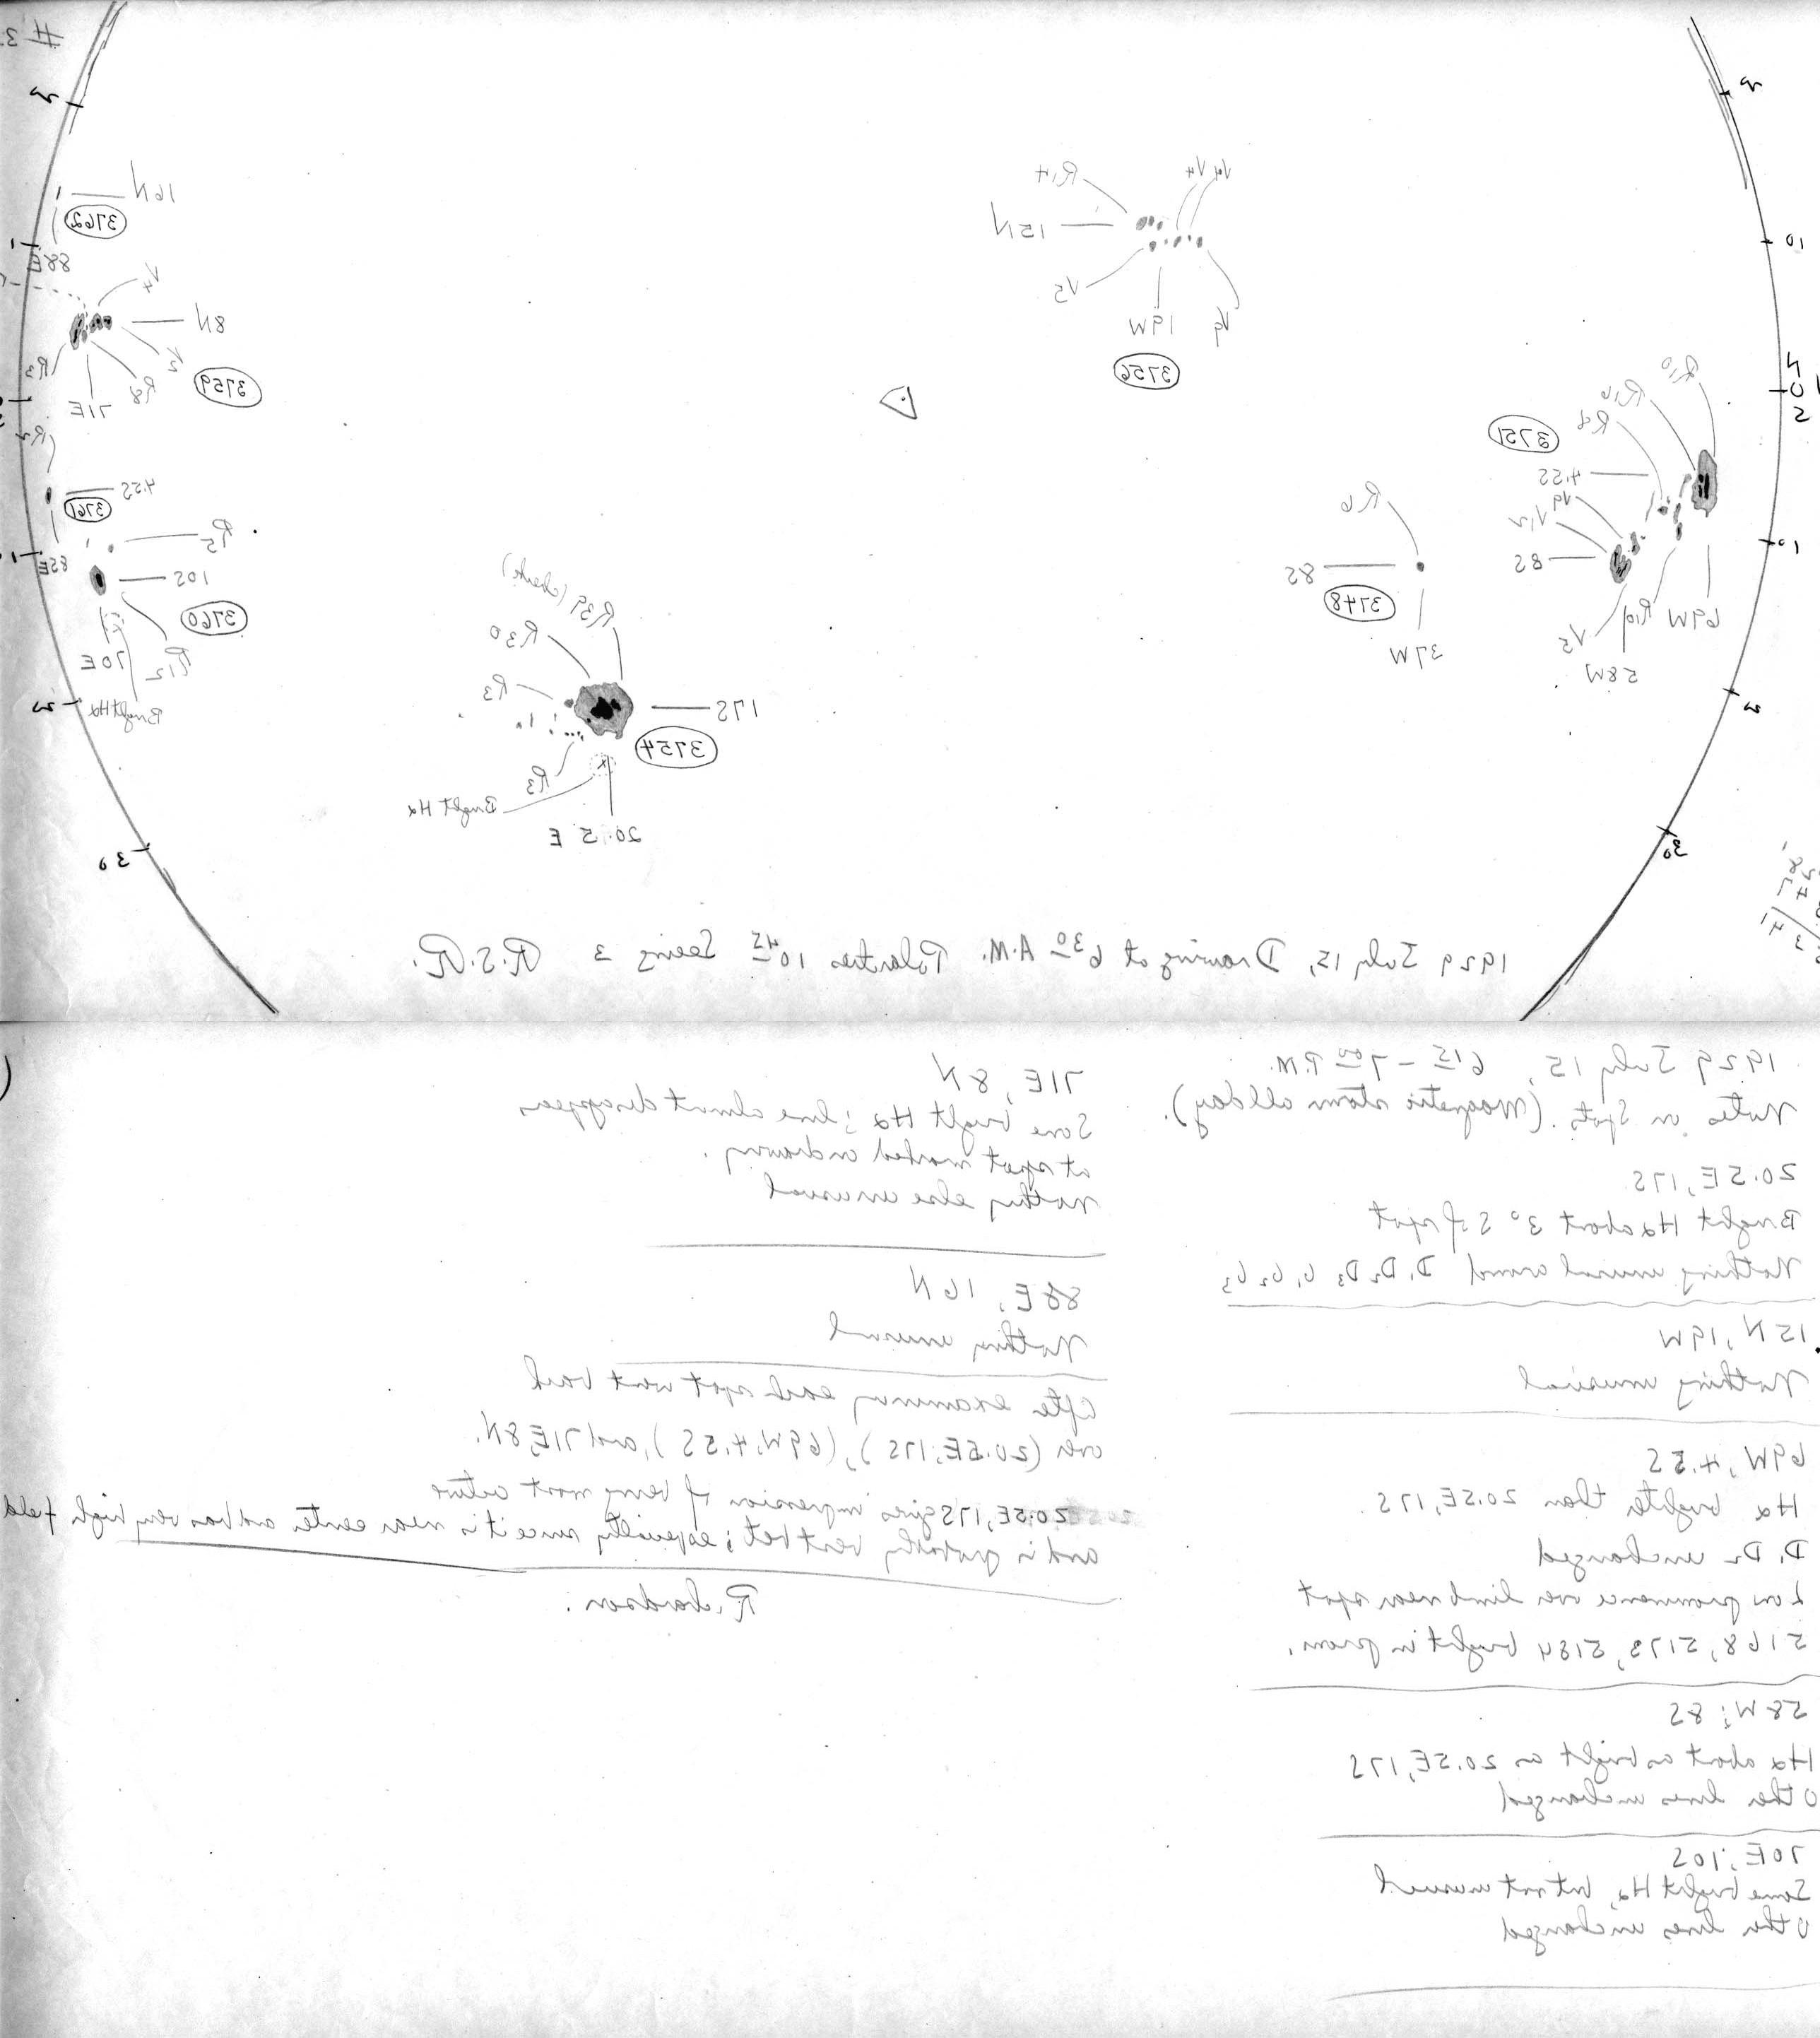 # 3
20
20
16N
3762
88E
1
10
R14
V4 V4
15N
V5
19W
V9
3756
V4
8N
V2
R3
71E
R8
3759
N
0
S
R10
R16
R6
3751
4.5S
V9
V12
8S
V5
R19
69W
58W
R2
4.5S
3761
85E
R5
10S
3760
70E
R12
Bright Hα
R6
8S
3748
37W
1
10
R39 (check)
R30
R3
17S
3754
R3
Bright Hα
20.5 E
20
20
30
30
1929 July 15, Drawing at 6 30 A.M. Polarities 10 45 Seeing 3 R.S.R.
1929 July 15, 6 15 – 7 00 P.M.
Notes on Spots. (Magnetic storm all day).
20.5E, 17S
Bright Hα about 3° S f spot
Nothing unusual around D1 D2 D3 b1 b2 b3
15N, 19W
Nothing unusual
69W, 4.5S
Hα brighter than 20.5E, 17S.
D1 D2 unchanged
Low prominence over limb near spot
5168, 5173, 5184 bright in prom.
58W; 8S
Hα about as bright as 20.5E, 17S
Other lines unchanged
70E; 10S
Some bright Hα, but not unusual
Other lines unchanged
71E, 8N
Some bright Hα; line almost disappears
at spot marked on drawing.
Nothing else unusual
88E, 16N
Nothing unusual
After examining each spot went back
over (20.5E, 17S), (69W, 4.5S), and 71E, 8N.
20.5E, 17S gives impression of being most active
and is probably best bet; especially since it is near center and has very high field
Richardson.